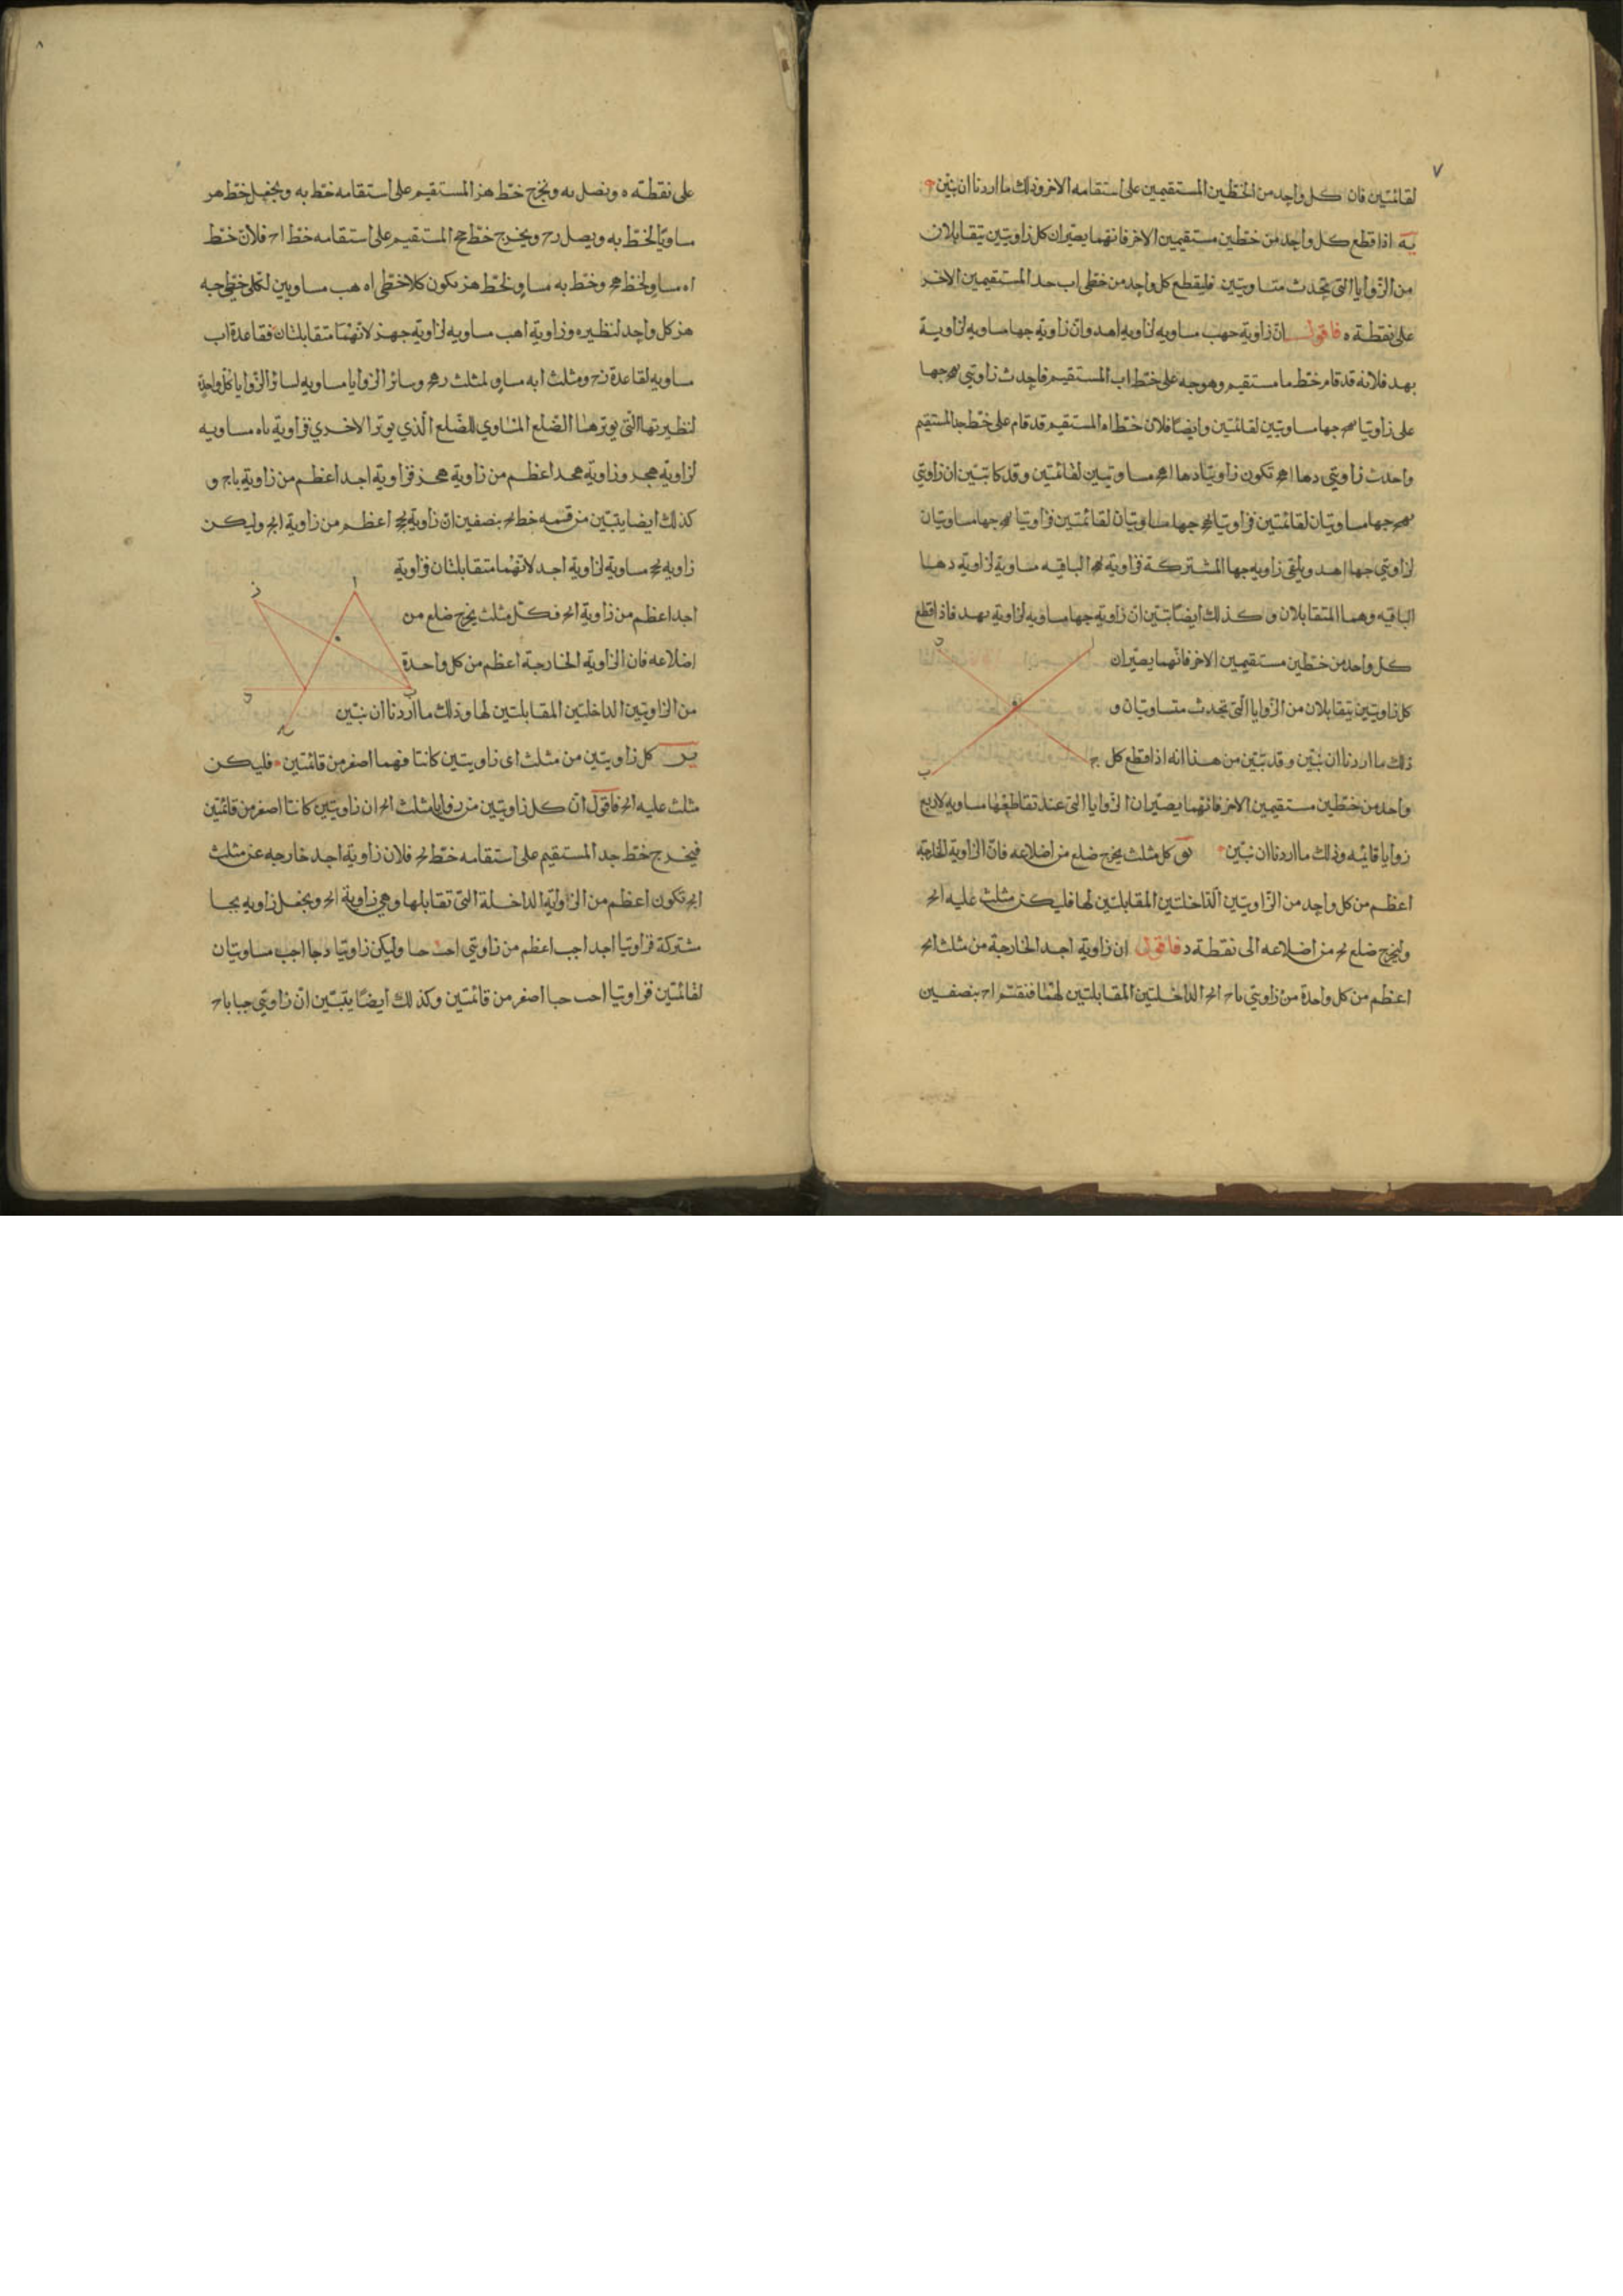 ٧
لقائمتين فان كل واحد من الخطين المستقيمين على استقامه الاخر وذلك ما اردنا ان نبين
يه اذا قطع كل واحد من خطين مستقيمين الاخر فانهما يصيران كل زاويتين يتقابلان
من الزوايا التى تحدث متساويتين فليقطع كل واحد من خطى اب حد المستقيمين الاخر
على نقطة ه فاقول ان زاوية حهب مساويه لزاويه اهد وان زاوية جها مساويه لزاوية
بهد فلانه قد قام خط ما مستقيم وهو جه على خط اب المستقيم فاحدث زاويتى جها
على زاويتا جها مساويتين لقائمتين وايضا فلان خط اه المستقيم قد قام على خط جد المستقيم
واحدث زاويتى دها اهج تكون زاويتا دها اهج مساويتين لقائمتين وقد كا تبين ان زاويتى
جها مساويتان لقائمتين فزاويتا جها مساويتان لقائمتين فزاويتا جها مساويتان
لزاويتى جها اهد ويلقى زاويه جها المشتركة فزاوية الباقيه مساوية لزاوية دها
الباقيه وهما المتقابلان و كذلك ايضا تبين ان زاوية جها مساويه لزاوية بهد فاذا قطع
كل واحد من خطين مستقيمين الاخر فانهما يصيران
كل زاويتين يتقابلان من الزوايا التى تحدث متساويتان و
ذلك ما اردنا ان نبين وقد تبين من هذا انه اذا قطع كل
واحد من خطين مستقيمين الاخر فانهما يصيران الزوايا التى عند تقاطعها مساويه لاربع
زوايا قائمه وذلك ما اردنا ان نبين يو كل مثلث يخرج ضلع من اضلاعه فان الزاوية الخارجة
اعظم من كل واحد من الزاويتين الداخلتين المقابلتين لها فليكن مثلث عليه ابج
وليخرج ضلع بج من اضلاعه الى نقطة د فاقول ان زاوية اجد الخارجة من مثلث ابج
اعظم من كل واحدة من زاويتى باج ابج الداخلتين المقابلتين لهما فنقسم اج بنصفين
٨
على نقطة ه ونصل به ونخرج خط هز المستقيم على استقامه خط به ويجعل خط هز
مساويا لخط به ويصل زج ويخرج خط جح المستقيم على استقامه خط اج فلان خط
اه مساو لخط هج وخط به مساو لخط هز يكون كلا خطى اه هب مساويين لكلى خطى جه
هز كل واحد لنظيره وزاوية اهب مساويه لزاوية جهز لانهما متقابلتان فقاعدة اب
مساويه لقاعدة زج ومثلث ابه مساو لمثلث زهج وسائر الزوايا مساويه لسائر الزوايا كل واحدة
لنظيرتها التى يوترها الضلع المساوي للضلع الذي يوتر الاخري فزاوية باه مساويه
لزاوية هجز وزاوية هجد اعظم من زاوية هجز فزاوية اجد اعظم من زاوية باج و
كذلك ايضا يتبين من قسمه خط بج بنصفين ان زاوية بجح اعظم من زاوية ابج وليكن
زاويه بجح مساوية لزاوية اجد لانهما متقابلتان فزاوية
اجد اعظم من زاوية ابج فكل مثلث يخرج ضلع من
اضلاعه فان الزاوية الخارجة اعظم من كل واحدة
من الزاويتين الداخلتين المقابلتين لها وذلك ما اردنا ان نبين
يز كل زاويتين من مثلث اى زاويتين كانتا فهما اصغر من قائمتين فليكن
مثلث عليه ابج فاقول ان كل زاويتين من زوايا مثلث ابج ان زاويتين كانتا اصغر من قائمتين
فيخرج خط جد المستقيم على استقامه خط بج فلان زاوية اجد خارجه عن مثلث
ابج تكون اعظم من الزاوية الداخلة التى تقابلها وهى زاوية ابج ويجعل زاويه بجا
مشتركة فزاويتا اجد اجب اعظم من زاويتى وليكن زاويتا دجا اجب مساويتان
لقائمتين فزاويتا اصغر من قائمتين وكذلك ايضا يتبين ان زاويتى جبا باج